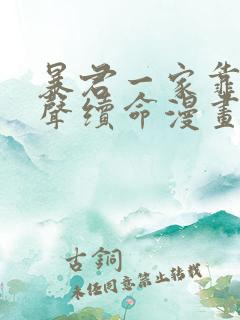 暴君一家靠
聲續命漫畫
古銅
未任同意禁止转载